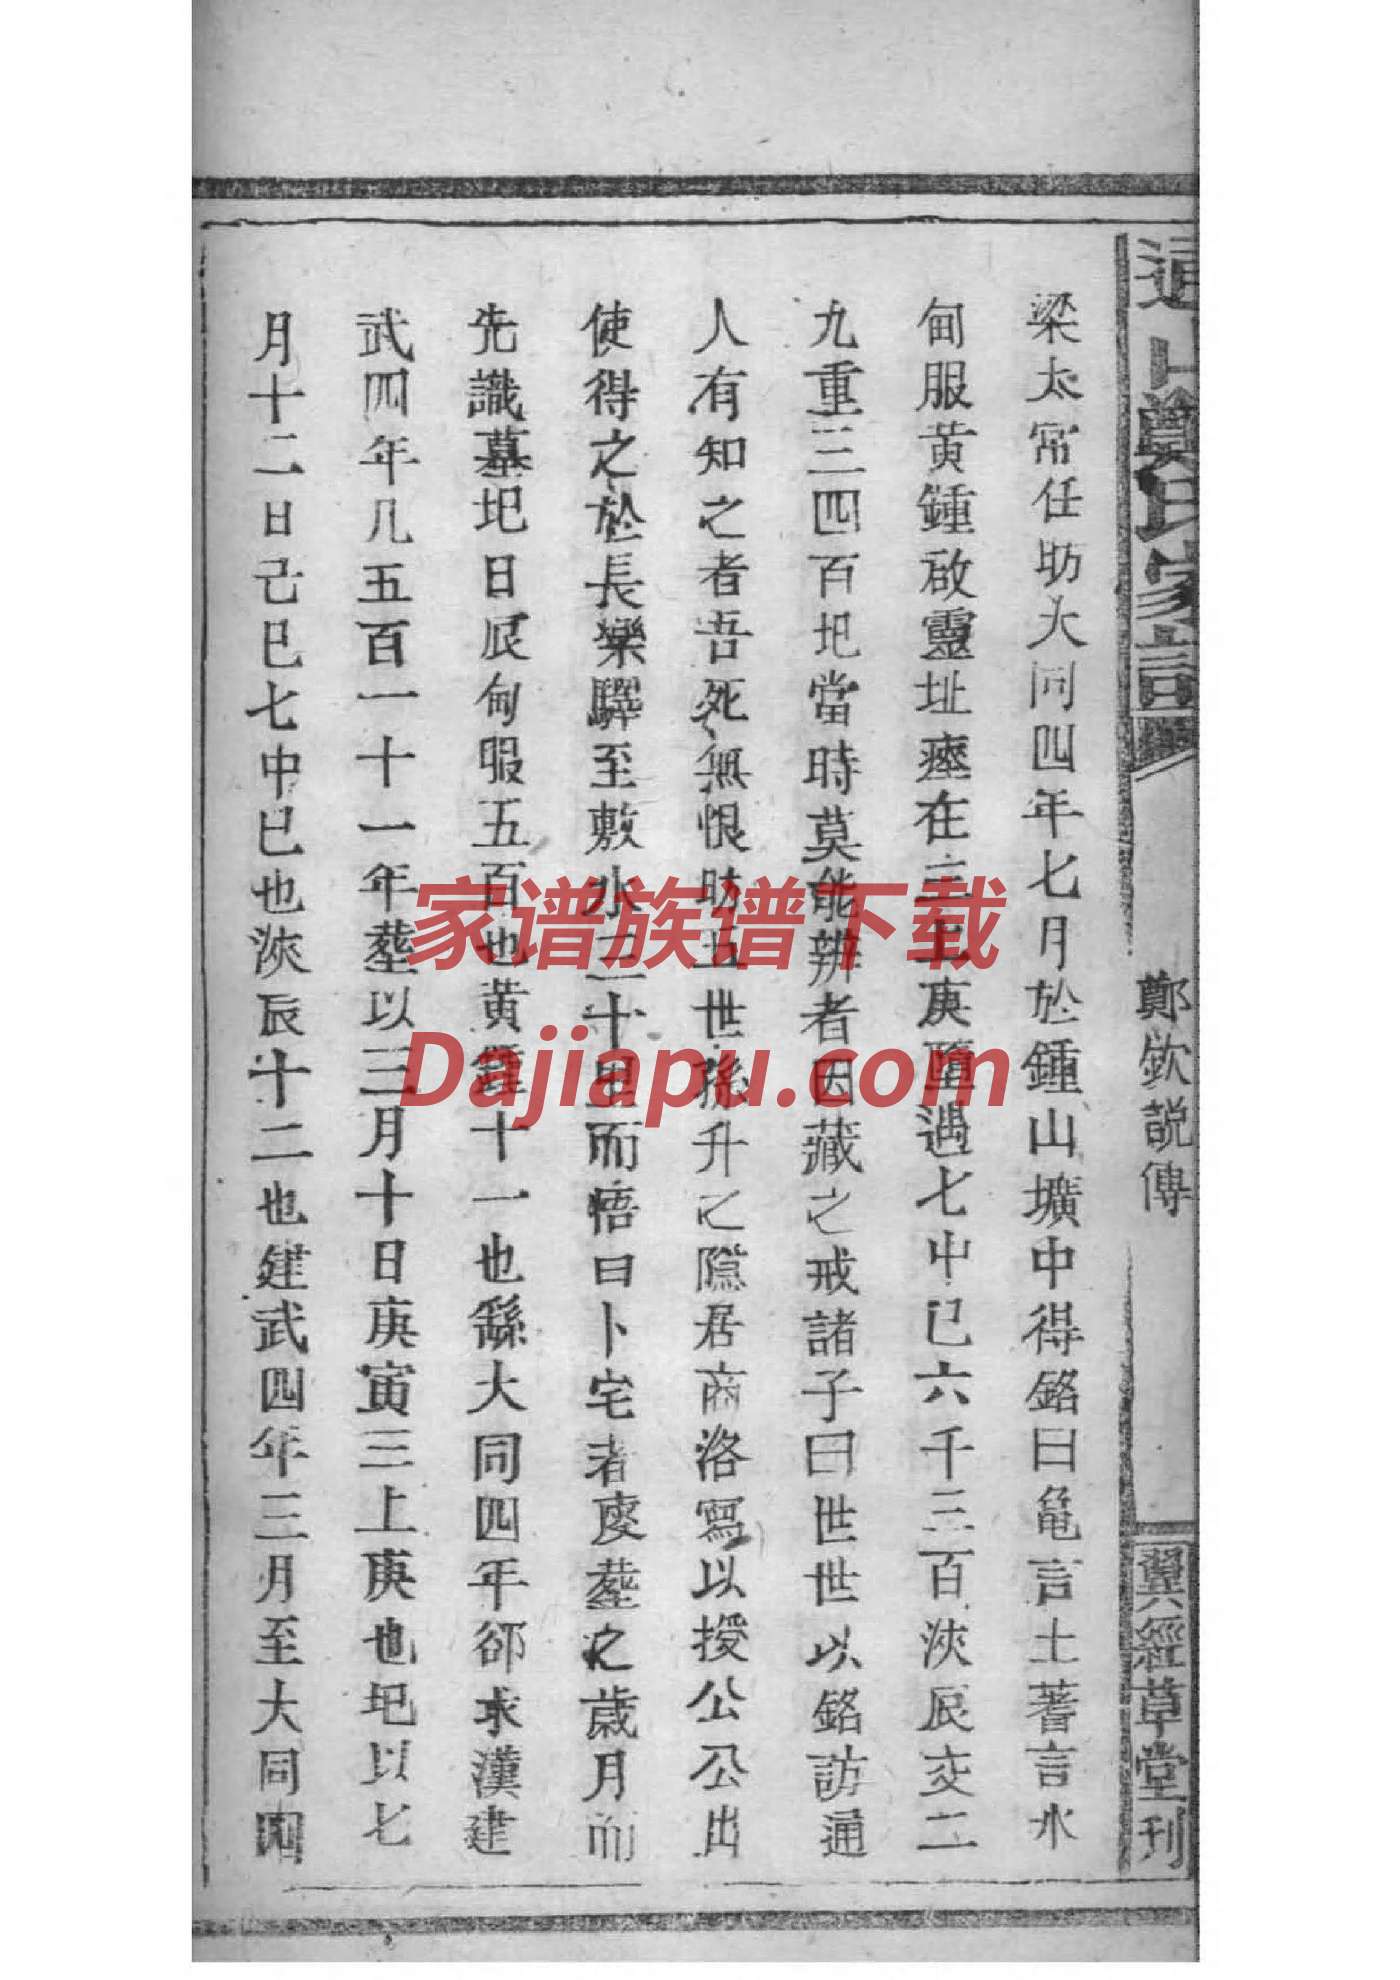 通山鄭氏家譜
鄭欽説傳
翼經草堂刊
梁太常任昉大同四年七月於鍾山壙中得銘曰龜言土蓍言水
甸服黃鍾啟靈址瘞在三上庚墮遇七中巳六千三百浹辰交二
九重三四百圯當時莫能辨者因藏之戒諸子曰世世以銘訪通
人有知之者吾死無恨昉五世孫升之隱居商洛寫以授公公出
使得之於長樂驛至敷水三十里而悟曰卜宅者廋塟之歲月而
先識墓圯日辰甸服五百也黃鍾十一也繇大同四年郤求漢建
武四年凡五百一十一年塟以三月十日庚寅三上庚也圯以七
月十二日己巳七中巳也浹辰十二也建武四年三月至大同四
家谱族谱下载
Dajiapu.com